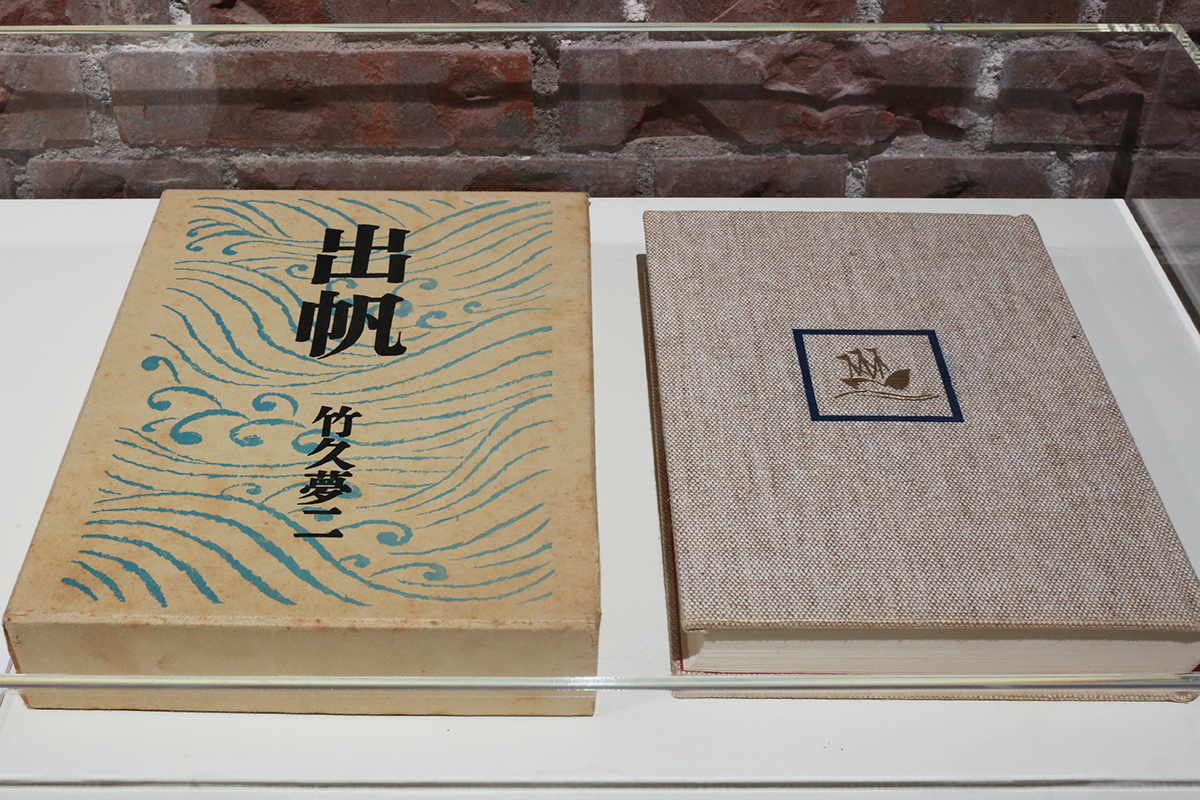 出帆
竹久夢二